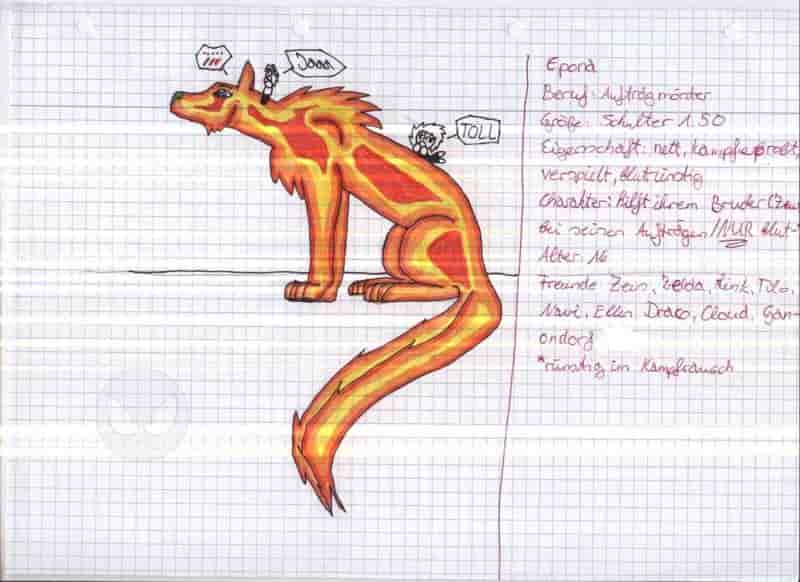 Jaaa
TOLL
Epona
Beruf: Auftragmörder
Größe: Schulter 1.50
Eigenschaft: nett, kampferprobt,
verspielt, blutrünstig
Charakter: hilft ihrem Bruder (Zeus
bei seinen Aufträgen/NUR blut-*
Alter: 16
Freunde Zeus, Zelda, Link, Tilo,
Navi, Ellen Draco, Cloud, Gan-
ondorf
*rünstig im Kampfrausch